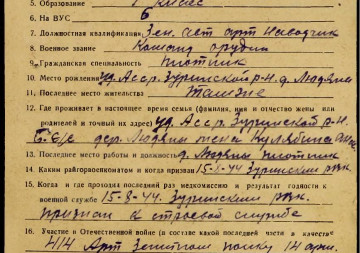 5. Образование 7 класс
6. На ВУС 6
7. Должностная квалификация Зен. авт. арт. Наводчик
8. Военное звание Команд. орудия
9. Гражданская специальность плотник
10. Место рождения Уд. Асср. Зуринской р-н. д. Людяны
11. Последнее место жительства
12. Где проживает в настоящее время семья (фамилия, имя и отчество жены или
родителей и точный их адрес) Уд. Асср. Зуринской р-н.
дер. Людяны жена Кулябина
13. Последнее место работы и должность д. Людяны плотник
14. Каким райгорвоенкоматом и когда призван 15-8-44 Зуринским рвк.
15. Когда и где проходил последний раз медкомиссию и результат годности к
военной службе 15-8-44. Зуринским рвк.
признан к строевой службе
16. Участие в Отечественной войне (в составе какой последней части и в качестве
414 Арт Зенитном полку 14 арм.